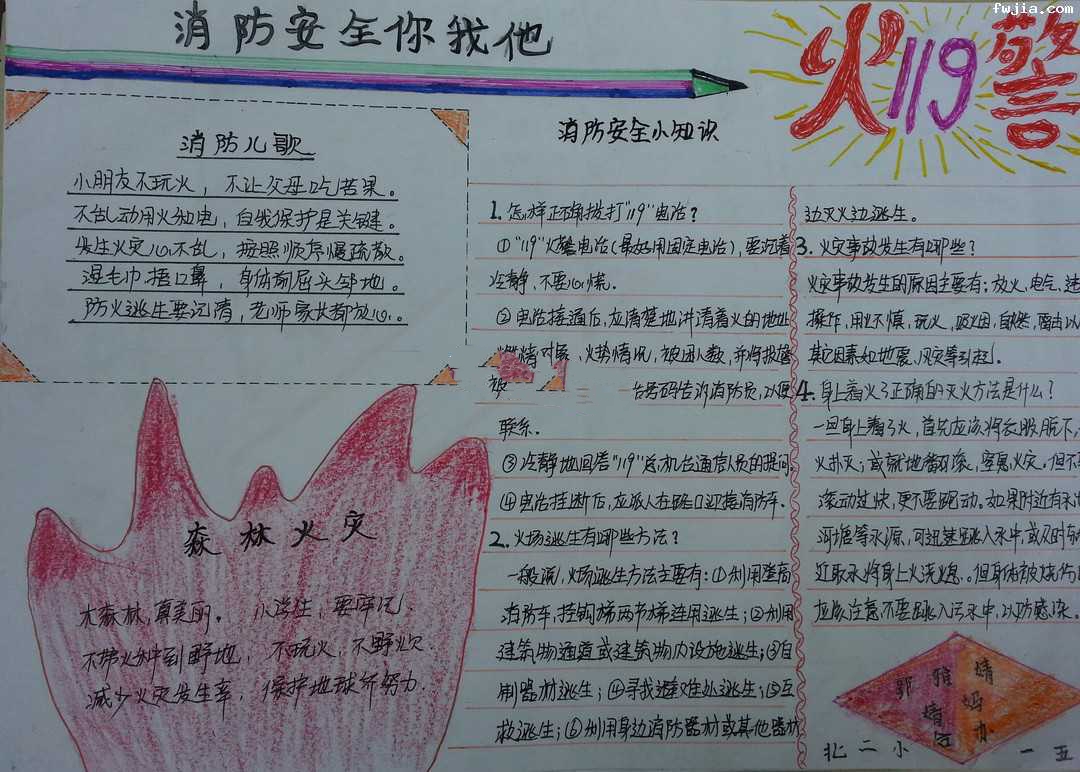 fwjia.com
消防安全你我他
火119警
消防儿歌
小朋友不玩火，不让父母吃苦果。
不乱动用火和电，自我保护是关键。
发生火灾心不乱，按照顺序慢疏散。
湿毛巾捂口鼻，身体前屈头邻地。
防火逃生要沉清，老师家长都放心。
森林火灾
木森林，真美丽。小学生，要牢记。
不带火种到野地，不玩火，不野炊
减少火灾发生率，保护地球齐努力.
消防安全小知识
1.怎样正确拨打"119"电话？
①"119"火警电话(最好用固定电话)，要沉着
冷静，不要心慌。
②电话接通后，应清楚地讲清着火的地址
燃烧对象、火势情况，被困人数，并将报警
台号码告诉消防员，以便
联系。
③冷静地回答"119"总机台通信人员的提问。
④电话挂断后，应派人在路口迎接消防车.
2.火场逃生有哪些方法？
一般说，火场逃生方法主要有：①利用登高
消防车，挂钩梯两节梯连用逃生；②利用
建筑物通道或建筑物内设施逃生；③自
制器材逃生；④寻找避难处逃生；⑤互
救逃生；⑥利用身边消防器材或其他器材
边灭火边逃生。
3.火灾事故发生有哪些？
火灾事故发生的原因主要有：放火、电气、违
操作，用火不慎，玩火，吸烟，自然，雷击以
其它因素如地震、风灾等引起.
4.身上着火了正确的灭火方法是什么？
一旦身上着了火，首先应该将衣服脱下，
火扑灭；或就地翻滚，窒息火灾。但不
滚动过快，更不要跑动。如果附近有水
河塘等水源，可迅速跳入水中，或及时
近取水将身上火浇熄.。但身体被烧伤
应注意不要跳入污水中，以防感染。
郭雅婧
婧爸
妈办
北二小 一五